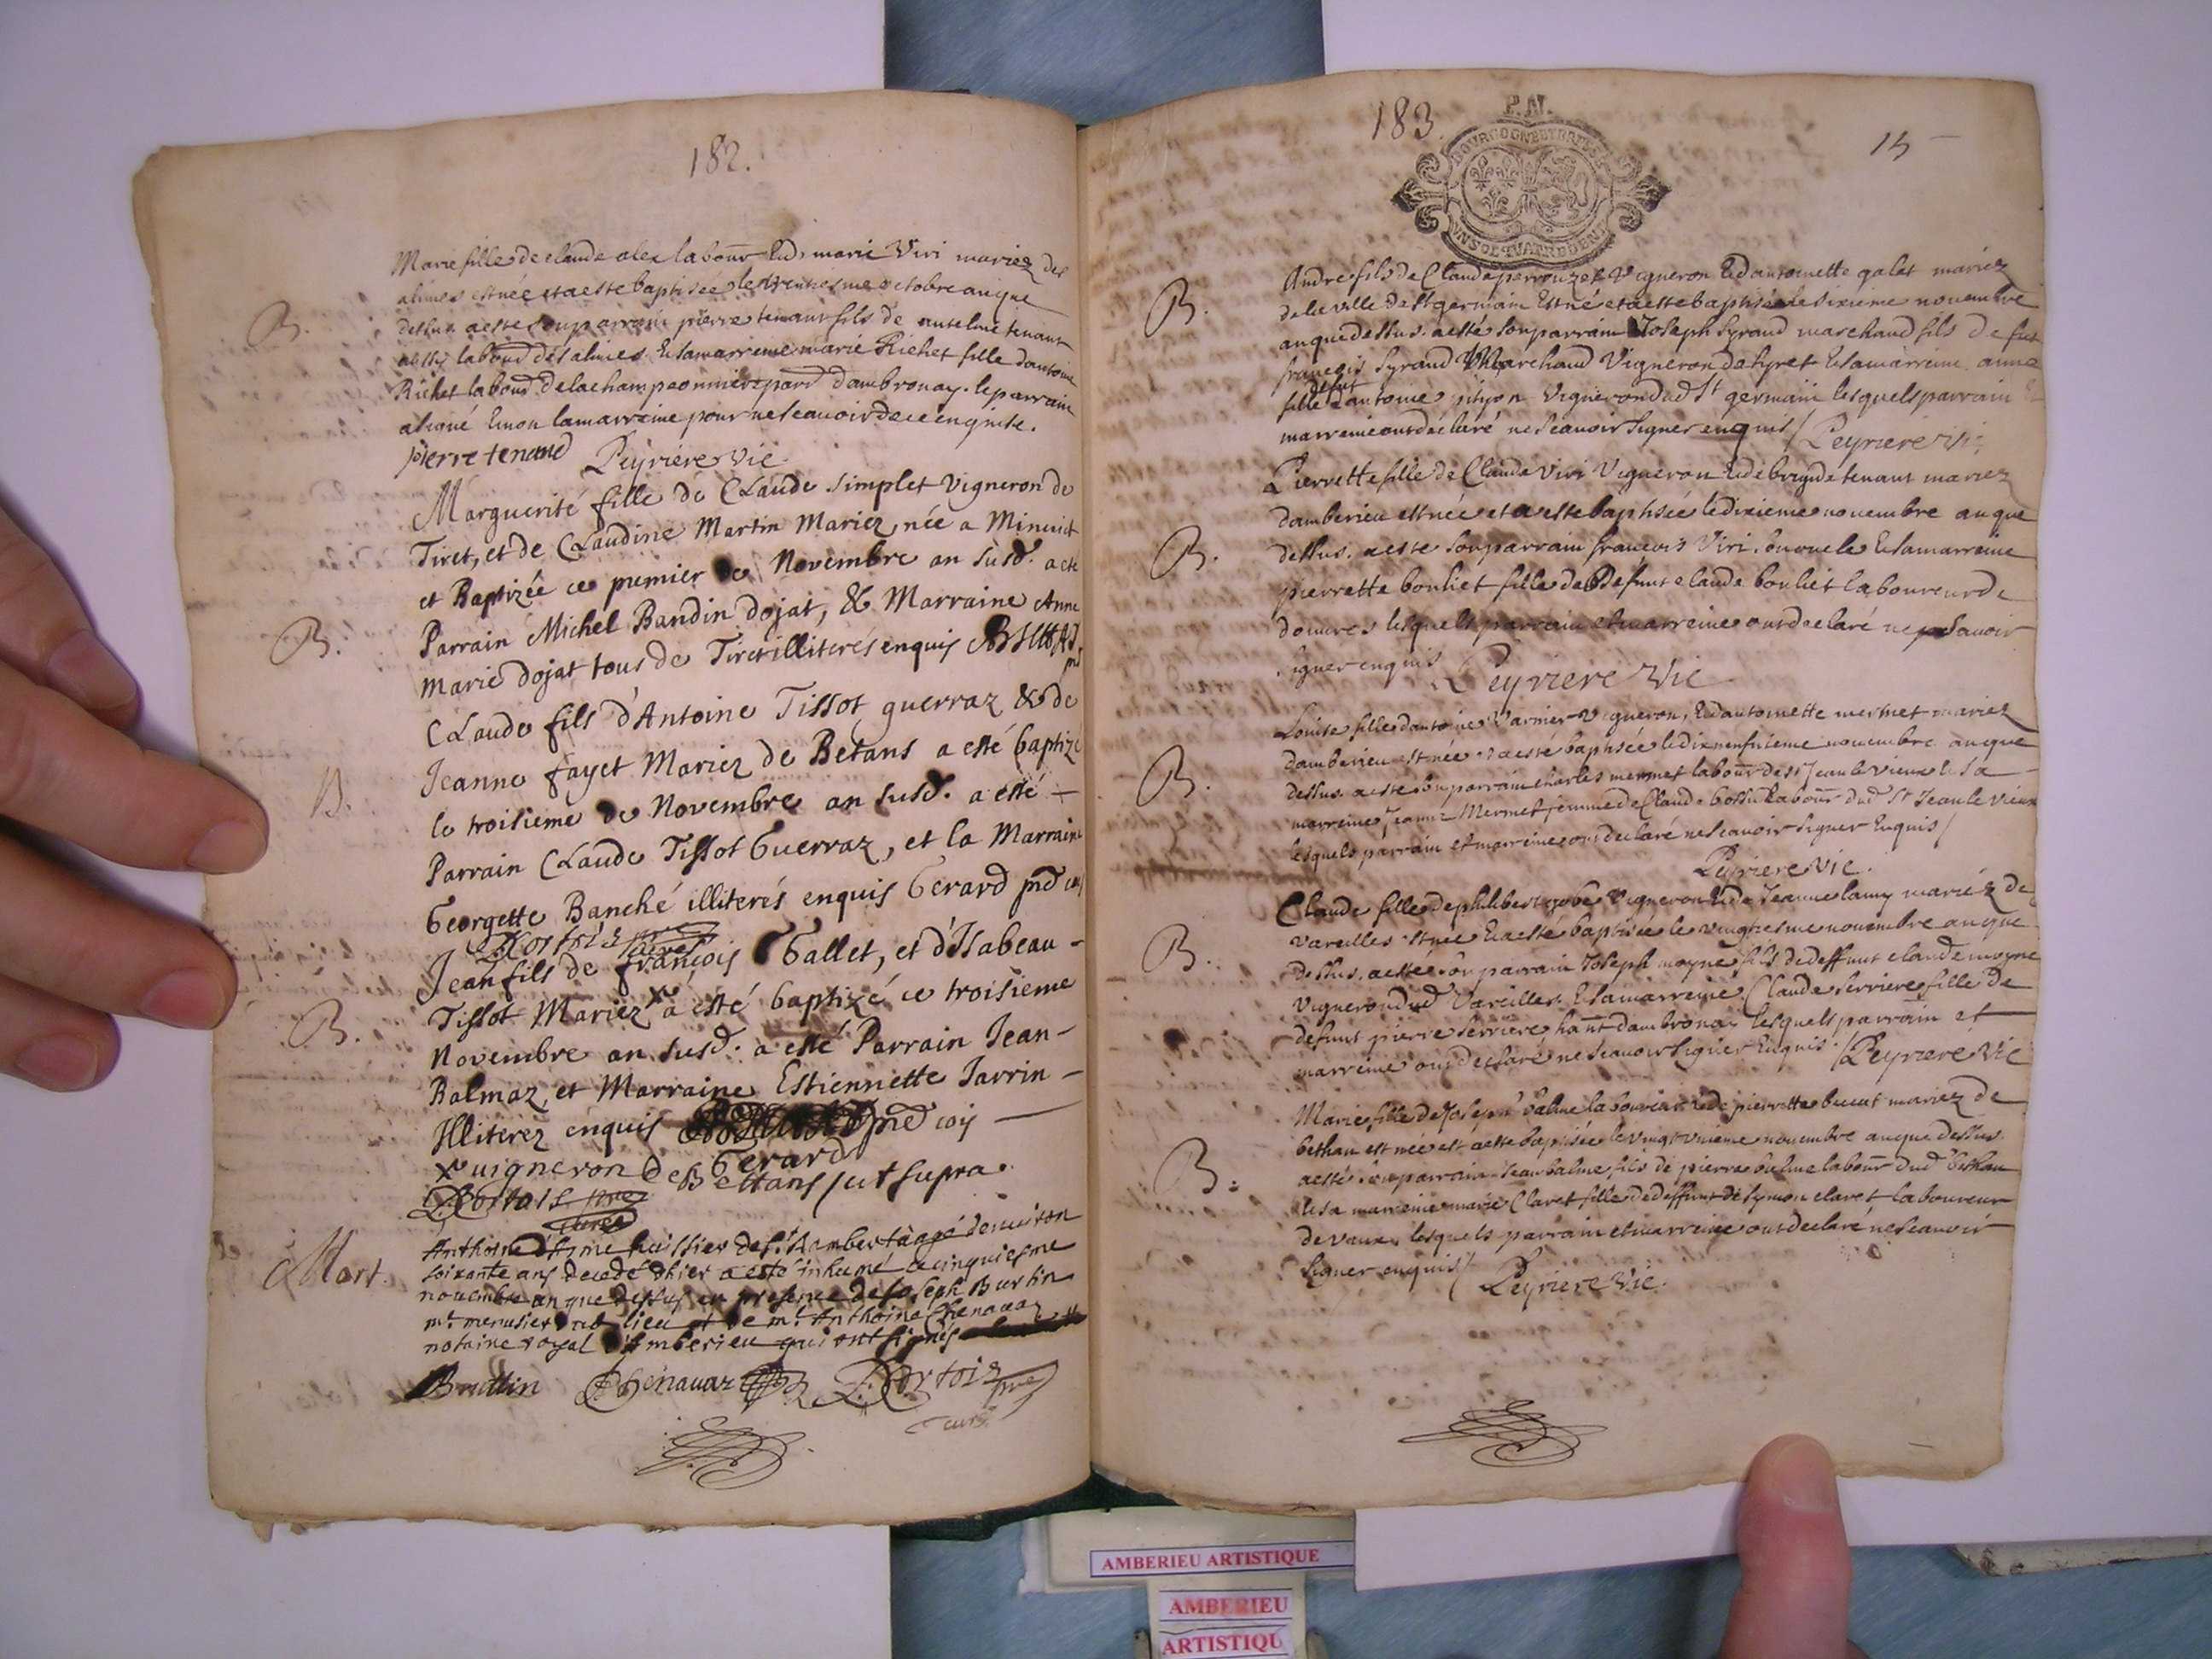 182.
Marie fille de claude alex labour Et de marie Viri mariez des
alimes est née et a esté baptisée le trentiesme octobre an que
dessus a esté son parrain pierre tenant fils de antelme tenant
aussy labour des alimes Et sa marreine marie Richet fille dantoine
Richet labour de la championniere par dambronay. le parrain
a signé Et non la marreine pour ne scavoir de ce enquise.
pierre tenand Peyriere Vic
B.
Marguerite fille de Claude Simplet Vigneron de
Tiret, et de Claudine Martin Mariez, née a Minuict
et Baptizée ce premier de Novembre an susd. a este
Parrain Michel Bandin dojat, & Marraine Anne
Marie dojat tous de Tiret illiterés enquis
B.
Claude fils d'Antoine Tissot guerraz & de
Jeanne fayet Mariez de Betans a esté baptizé
le troisieme de Novembre an susd. a esté
Parrain Claude Tissot Guerraz, et la Marraine
Georgette Banché illiterés enquis Gerard
B.
Jean fils de françois Gallet, et d'Isabeau
Tissot Mariez x a esté baptizé ce troisieme
Novembre an susd. a esté Parrain Jean
Balmaz, et Marraine Estiennette Jarrin
Illiterez enquis
B.
x uigneron de Bettans / ut supra. Gerard
Mort.
Anthoine huissier de st Rambert aagé denuiron
soixante ans decedé dhier a esté inhumé ce cinquiesme
novembre an que dessus en presence de Joseph Burlin
mr menusier dud lieu et de mr Anthoine Chenavaz
notaire royal d'Amberieu qui ont signés
Chenavaz
183.
P.N.
BOURGOGNE ET BRESSE
15
B.
Andre fils de Claude perrouzet Vigneron Et dantoinette galet mariez
de la ville de st germain Est né et a esté baptisé le sixieme novembre
an que dessus. a esté son parrain Joseph Syrand marchand fils de feu
françois Syrand Marchand Vigneron de tyret Et sa marreine anne
fille defunt antoine pityon Vigneron dud St germain lesquels parrain Et
marreine ont déclaré ne scavoir signer enquis / Peyriere vic
B.
Pierrette fille de Claude Viri Vigneron Et de brigide tenant mariez
damberieu est née et a esté baptisée le dixieme novembre an que
dessus. a esté son parrain francois Viri son oncle Et sa marreine
pierrette bouliet fille de Defunt claude bouliet laboureur de
douvres lesquels parrain et marreine ont declaré ne scavoir
signer enquis Peyriere Vic
B.
Louise fille dantoine Varnier Vigneron, Et dantoinette mermet mariez
damberieu est née Et a esté baptisée le dix neufuieme novembre an que
dessus. a esté son parrain charles mermet labour de st Jean le vieux Et sa
marreine Jeanne Mermet femme de Claude bossu labour dud St Jean le Vieux
lesquels parrain et marreine ont declaré ne scavoir signer Enquis /
Peyriere Vic.
B.
Claude fille de philibert gobe Vigneron Et de Jeanne lamy mariéz de
vareilles est née Et a esté baptisée le vingtiesme novembre an que
dessus. a esté son parrain Joseph moyne fils de deffunt claude moyne
Vigneron dud Vareilles. Et sa marreine Claude Serriere fille de
defunt pierre serriere hant dambronay lesquels parrain et
marreine ont declaré ne scavoir signer Enquis / Peyriere Vic
B:
Marie fille de Joseph balme laboureur Et de pierrette mariez de
bethan est née et a esté baptisée le vingt unieme novembre an que dessus
a esté son parrain Jean balme fils de pierre balme labour dud bethan
Et sa marreine marie Claret fille de deffunt de Symon claret laboureur
de vaux, lesquels parrain et marreine ont declaré ne scavoir
signer enquis / Peyriere Vic.
AMBERIEU ARTISTIQUE
AMBERIEU
ARTISTIQU